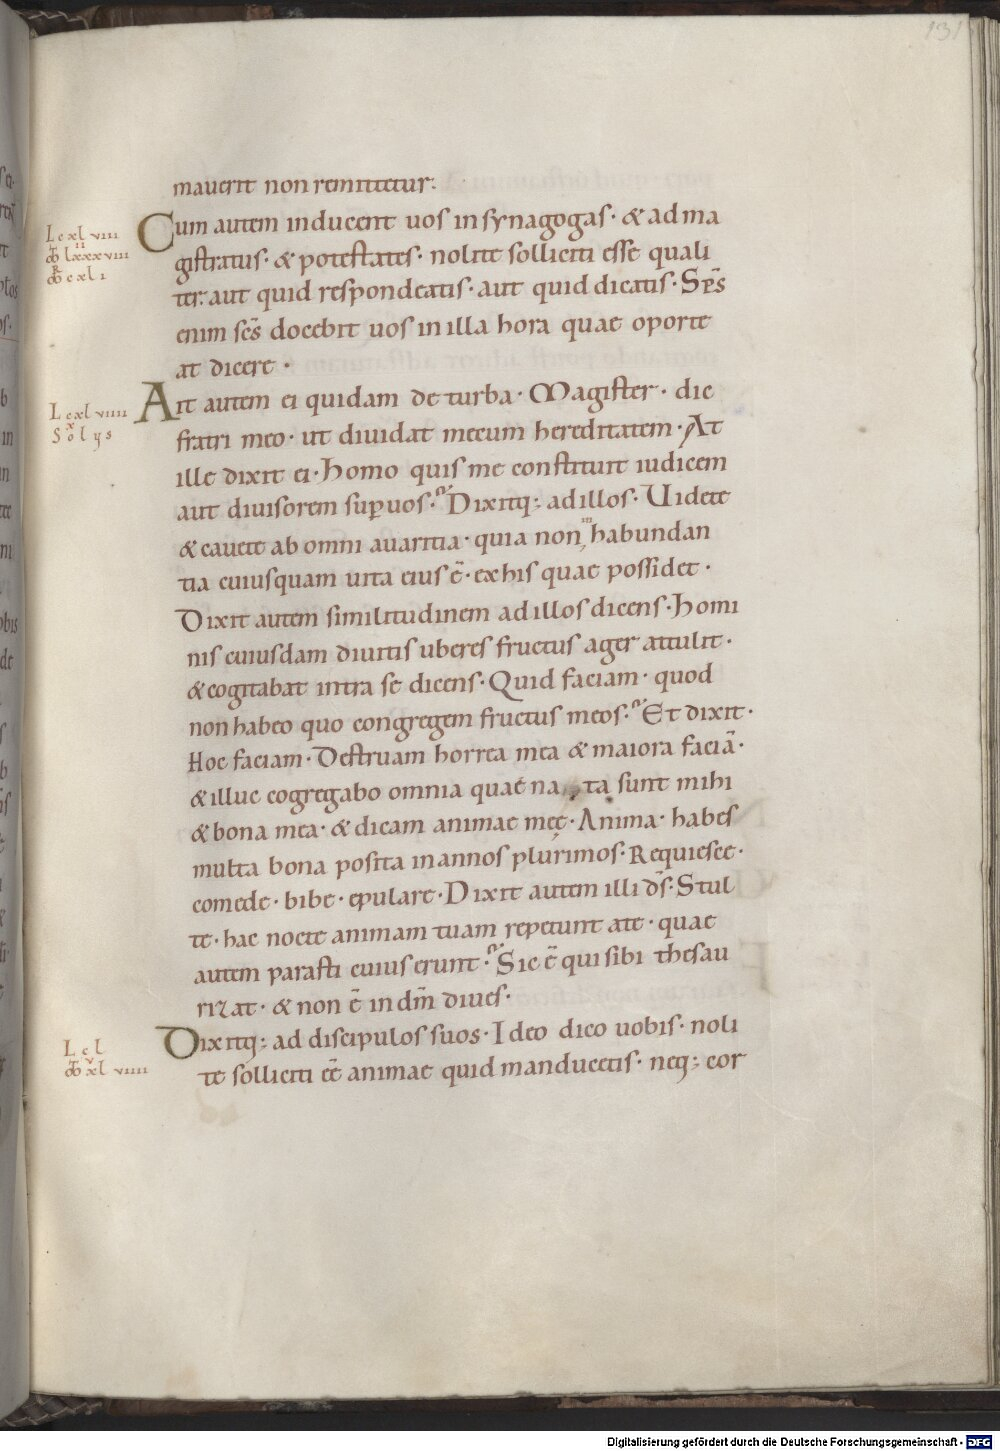 131
mauerit non remittetur.
Cum autem inducent uos in synagogas · & ad ma
L cxlviii
gistratus · & potestates · nolite solliciti esse quali
M lxxxviii
II
ter · aut quid respondeatis · aut quid dicatis · Sp̄s
R
cxli
enim sc̄s docebit uos in illa hora quae oporte
at dicere ·
Ait autem ei quidam de turba · Magister · dic
L cxlviiii
fratri meo · ut diuidat mecum hereditatem · At
x
Solus
ille dixit ei · Homo quis me constituit iudicem
aut diuisorem sup uos · Dixitq; ad illos · Uidete
& cauete ab omni auaritia · quia non in habundan
tia cuiusquam uita eius ē · ex his quae possidet ·
Dixit autem similitudinem ad illos dicens · Homi
nis cuiusdam diuitis uberes fructus ager attulit ·
& cogitabat intra se dicens · Quid faciam · quod
non habeo quo congregem fructus meos · Et dixit ·
Hoc faciam · Destruam horrea mea & maiora faciā ·
& illuc cogregabo omnia quae na ta sunt mihi
& bona mea · & dicam animae meę · Anima · habes
multa bona posita in annos plurimos · Requiesce ·
comede · bibe · epulare · Dixit autem illi d̄s · Stul
te · hac nocte animam tuam repetunt a te · quae
autem parasti cuius erunt · Sic ē qui sibi thesau
rizat · & non ē in dm̄ diues ·
Dixitq; ad discipulos suos · Ideo dico uobis · noli
L cl
v
xlviiii
te solliciti eē animae quid manducetis · neq; cor
Digitalisierung gefördert durch die Deutsche Forschungsgemeinschaft - DFG